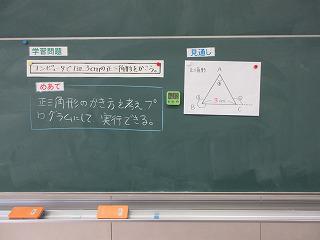 学習問題
コンピュータで1辺3cmの正三角形をかこう。
めあて
正三角形のかき方を考えプ
ログラムにして実行できる。
見通し
正三角形
A
B
C
3cm